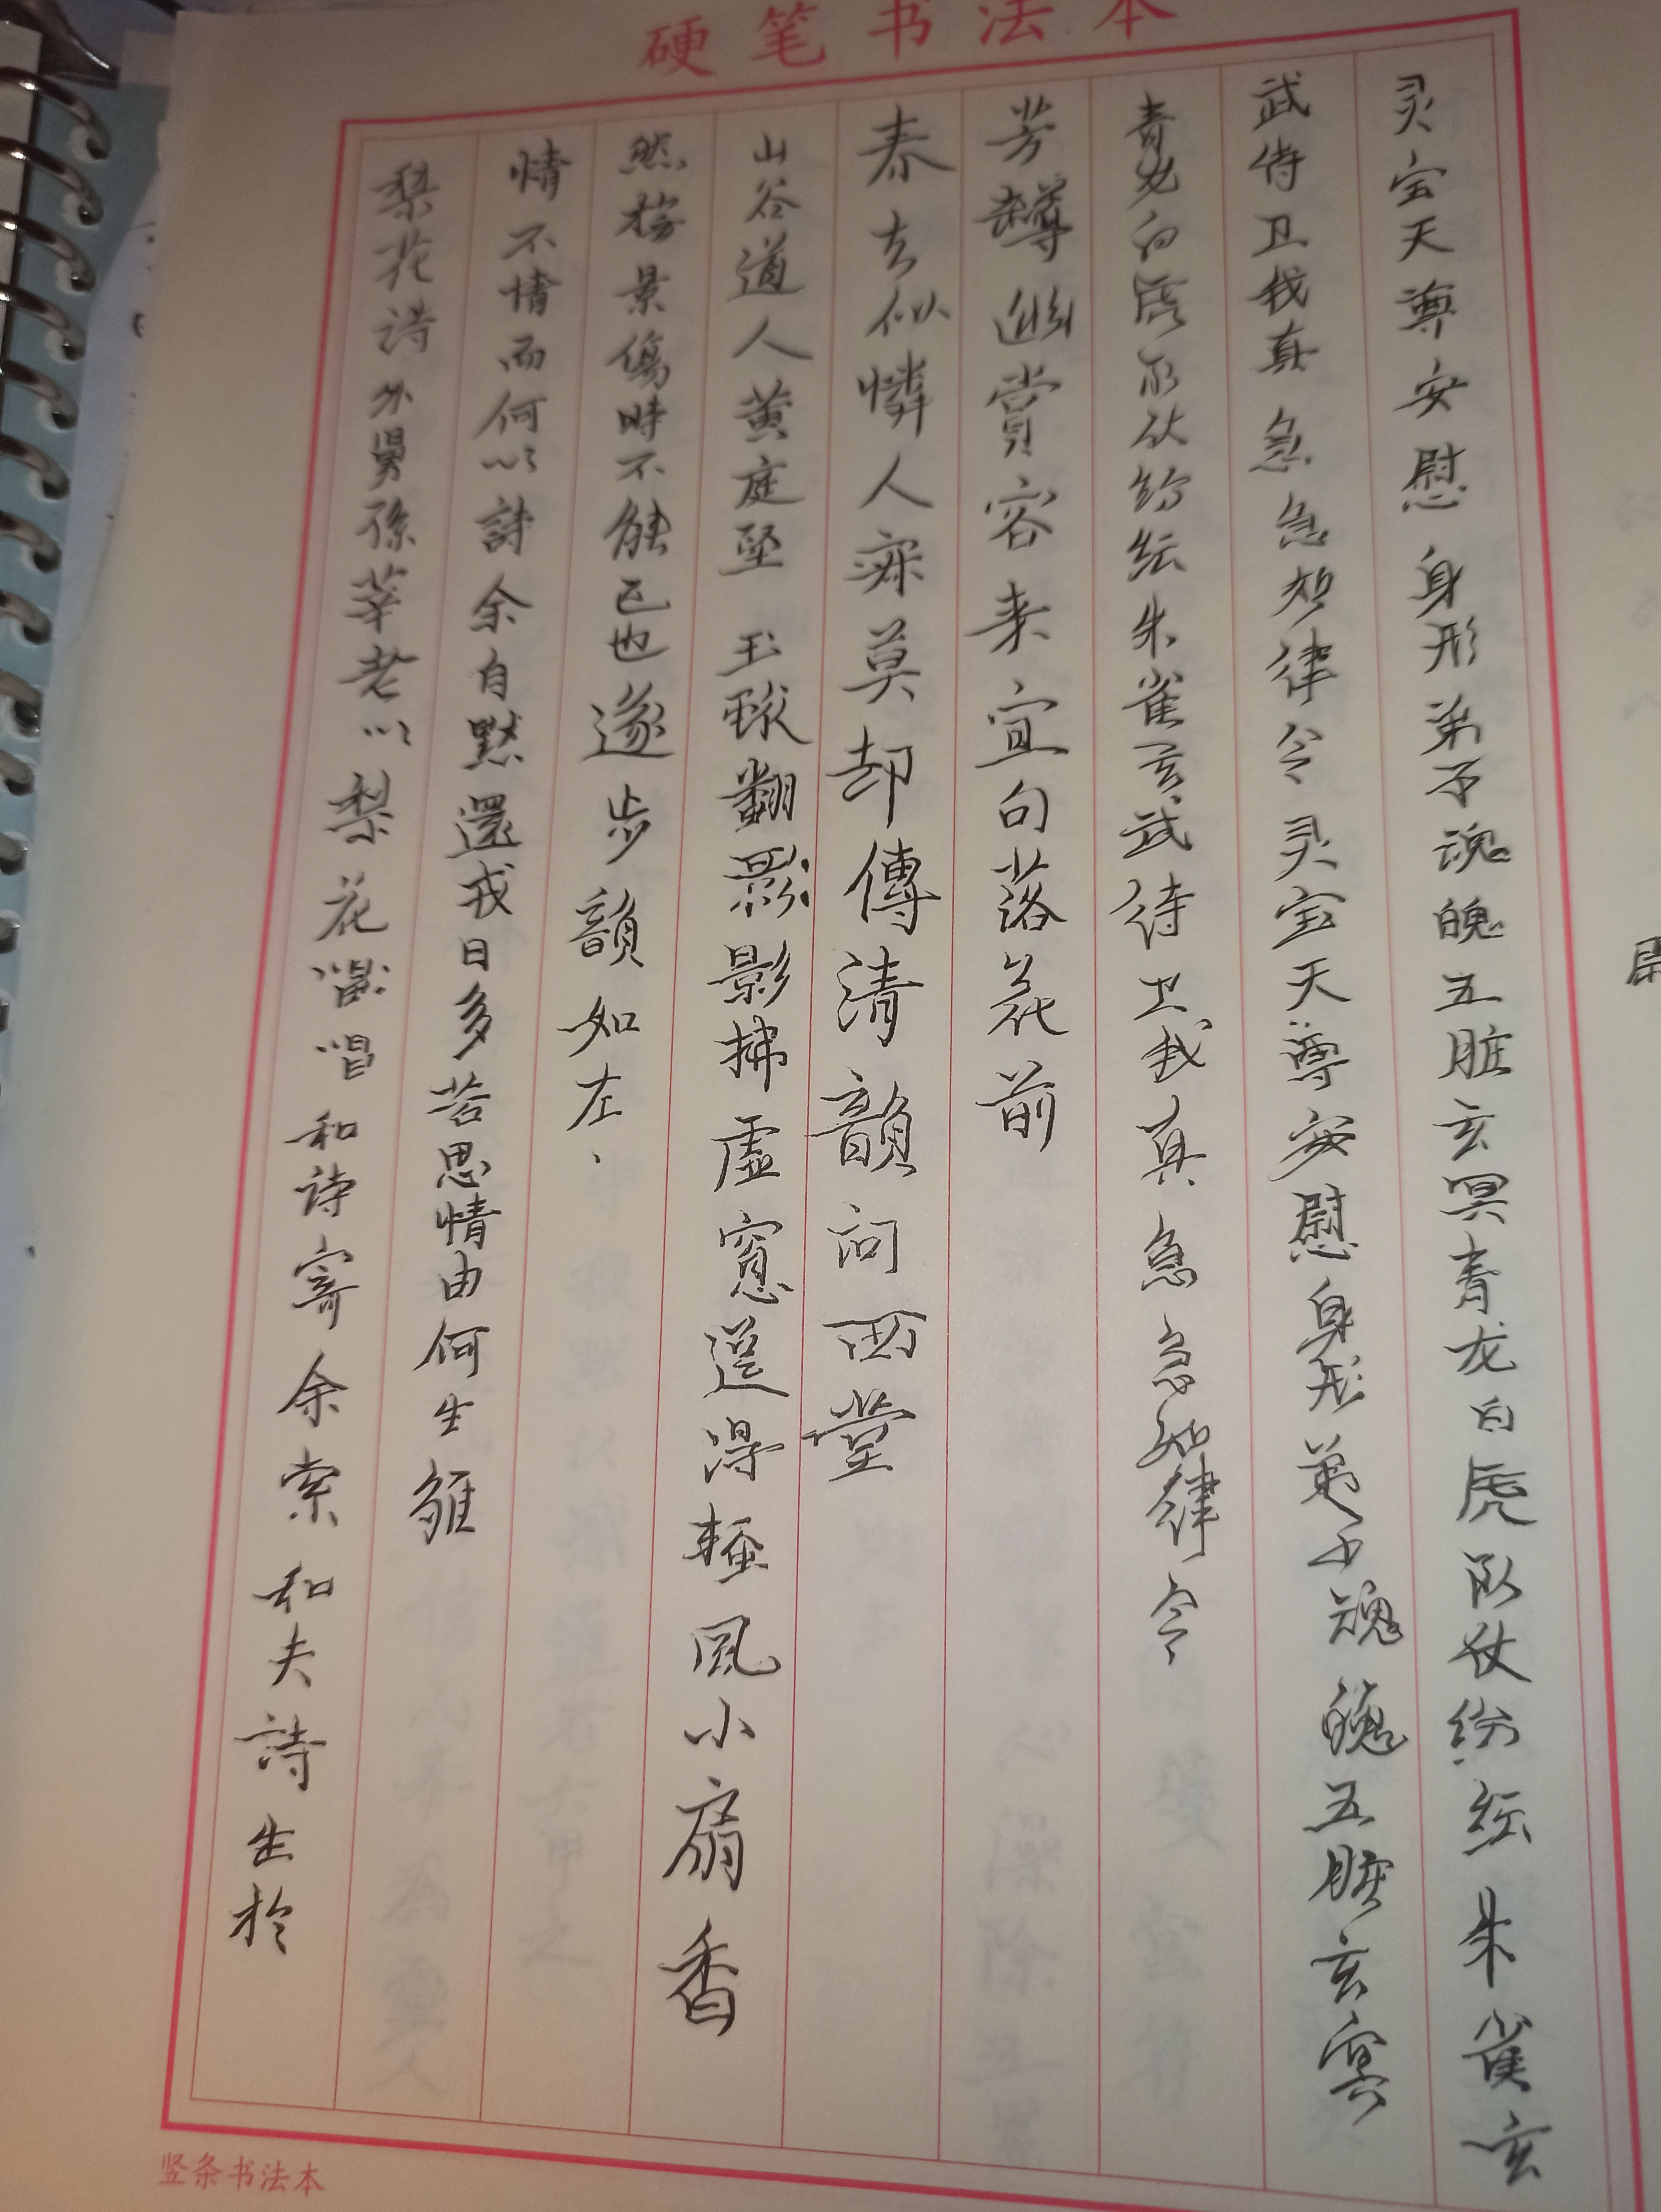 硬笔书法本
灵宝天尊安慰身形弟子魂魄五脏玄冥青龙白虎队仗纷纭朱雀玄
武侍卫我真急急如律令灵宝天尊安慰身形弟子魂魄五脏玄冥
青龙白虎队仗纷纭朱雀玄武侍卫我真急急如律令
芳樽幽賞容来宜句落花前
春去似憐人寂莫却傳清韻向西堂
山谷道人黄庭堅 玉 翻影影拂虚窻選得輕風小扇香
然 景傷時不能已也遂步韻如左、
情不情而何以詩余自黙還戎日多苦思情由何生雖
梨花诗外舅孫莘老以梨花唱和诗寄余索和夫詩生於
竖条书法本